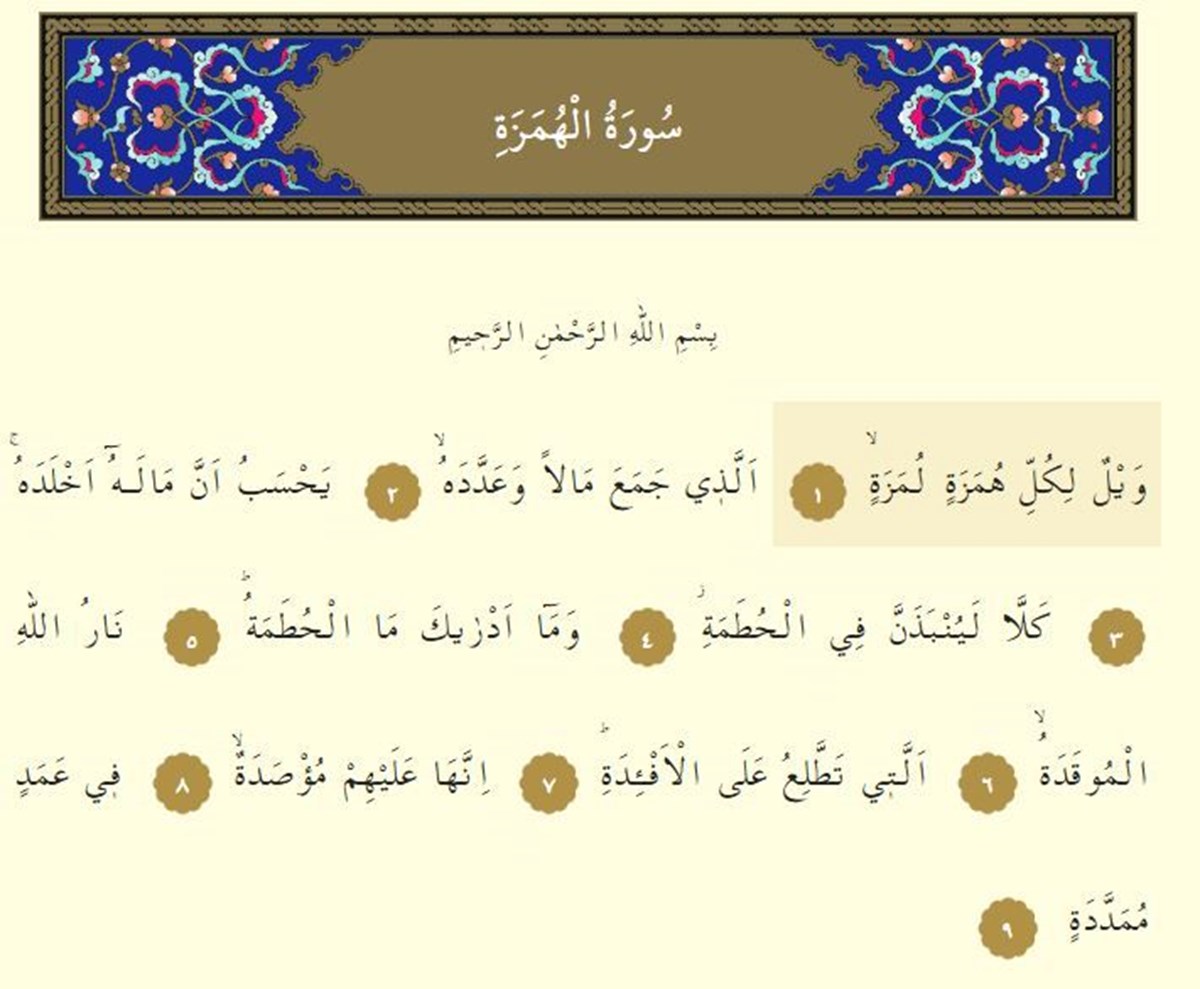 سُورَةُ الْهُمَزَةِ
بِسْمِ اللّٰهِ الرَّحْمٰنِ الرَّح۪يمِ
وَيْلٌ لِكُلِّ هُمَزَةٍ لُمَزَةٍۙ ١ اَلَّذ۪ي جَمَعَ مَالاً وَعَدَّدَهُۙ ٢ يَحْسَبُ اَنَّ مَالَـهُٓ اَخْلَدَهُۚ
٣ كَلَّا لَيُنْبَذَنَّ فِي الْحُطَمَةِۘ ٤ وَمَٓا اَدْرٰيكَ مَا الْحُطَمَةُۜ ٥ نَارُ اللّٰهِ
الْمُوقَدَةُۙ ٦ اَلَّت۪ي تَطَّلِعُ عَلَى الْاَفْـِٔدَةِۜ ٧ اِنَّهَا عَلَيْهِمْ مُؤْصَدَةٌۙ ٨ ف۪ي عَمَدٍ
مُمَدَّدَةٍ ٩